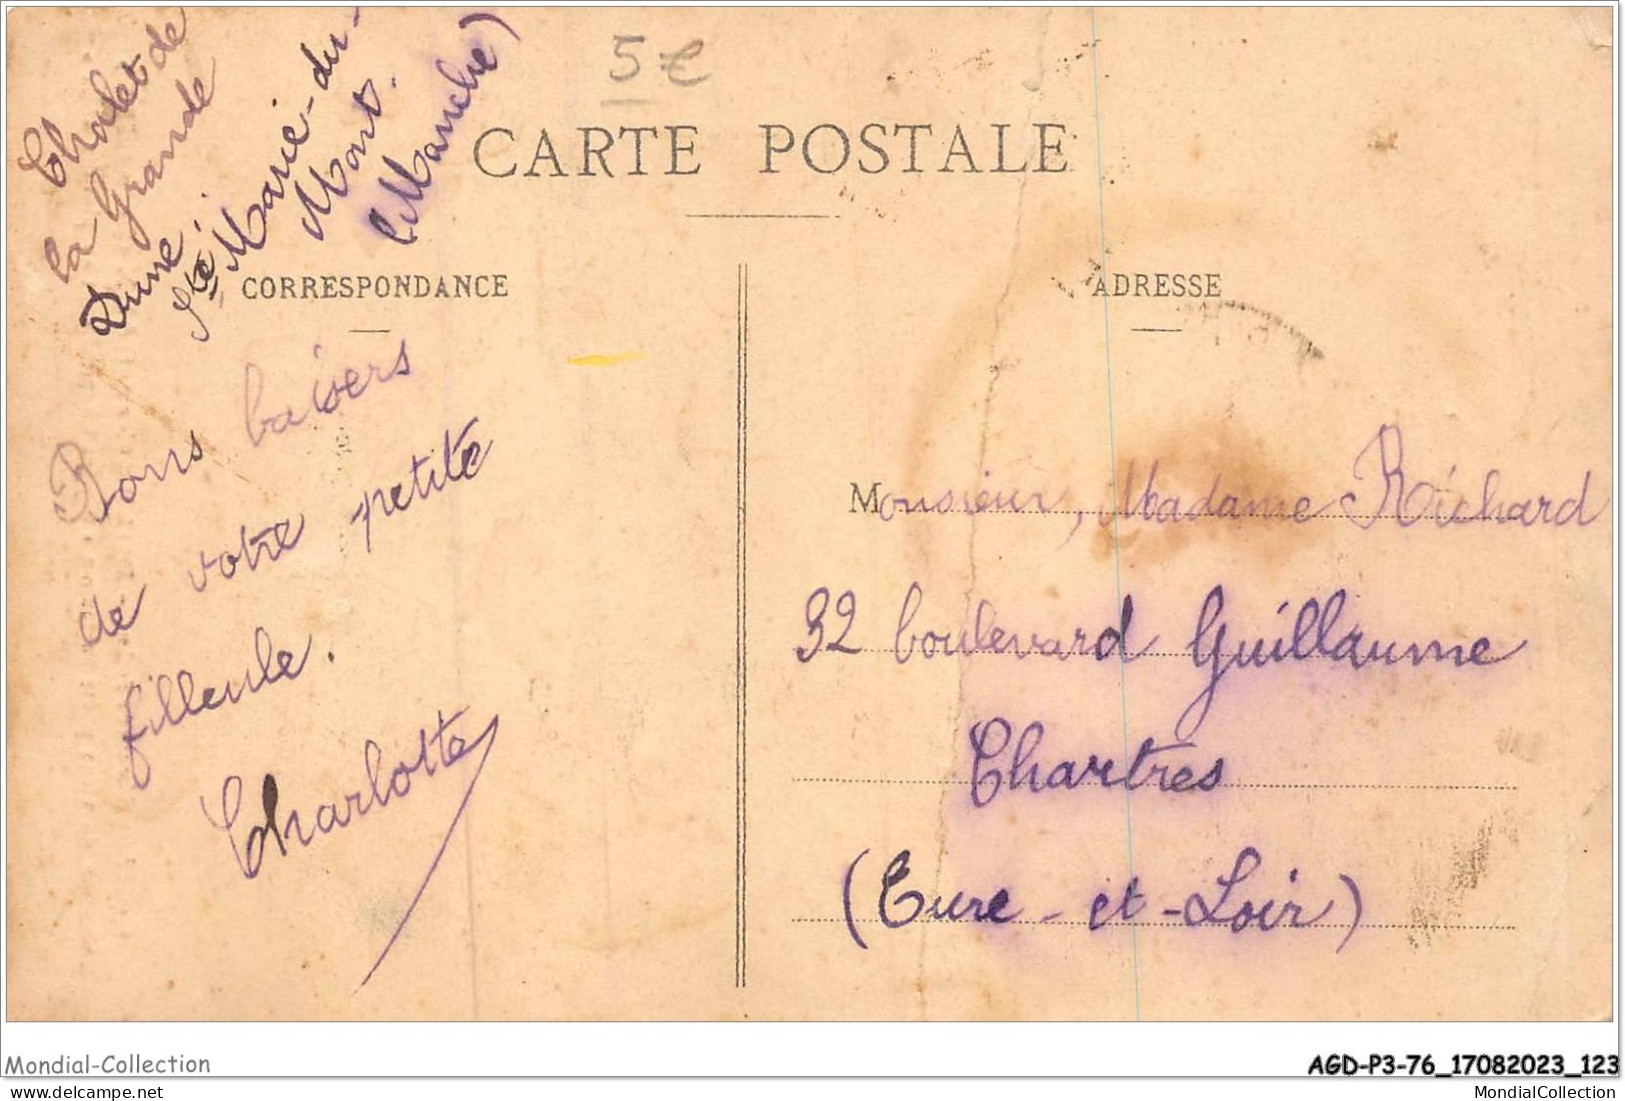 5 €
Chalet de
la Grande
Dune.
Ste Marie-du-
Mont.
(Manche)
CARTE POSTALE
CORRESPONDANCE
ADRESSE
Bons baisers
de votre petite
filleule.
Charlotte
Monsieur, Madame Richard
32 boulevard Guillaume
Chartres
(Eure-et-Loir)
Mondial-Collection
AGD-P3-76_17082023_123
delcampe.net
MondialCollection